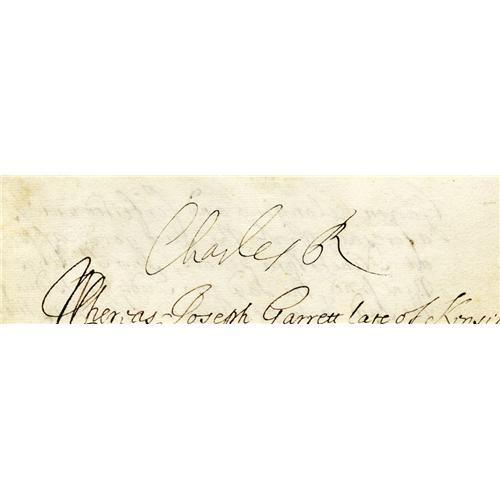 Charles R
Whereas Joseph Garrett late of Kinsi